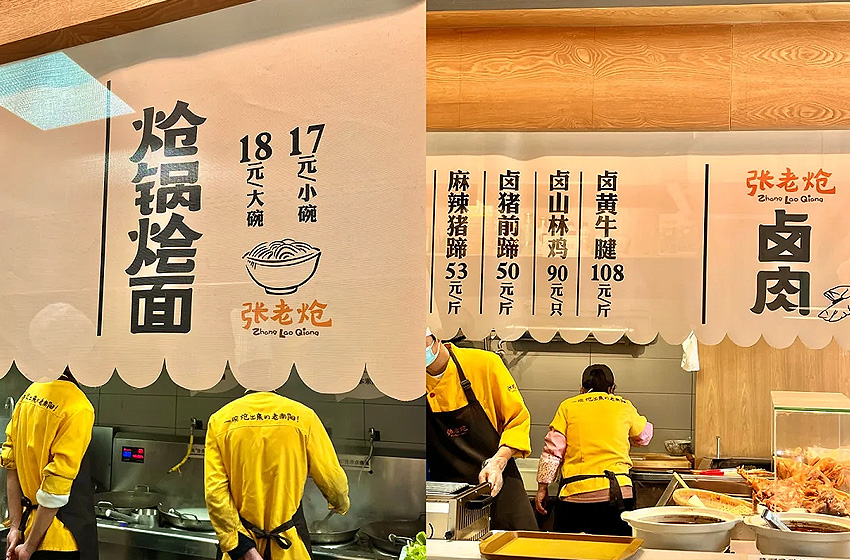 炝锅烩面
17元/小碗
18元/大碗
张老炝
Zhang Lao Qiang
张老炝
Zhang Lao Qiang
卤肉
卤黄牛腱 108元/斤
卤山林鸡 90元/只
卤猪前蹄 50元/斤
麻辣猪蹄 53元/斤